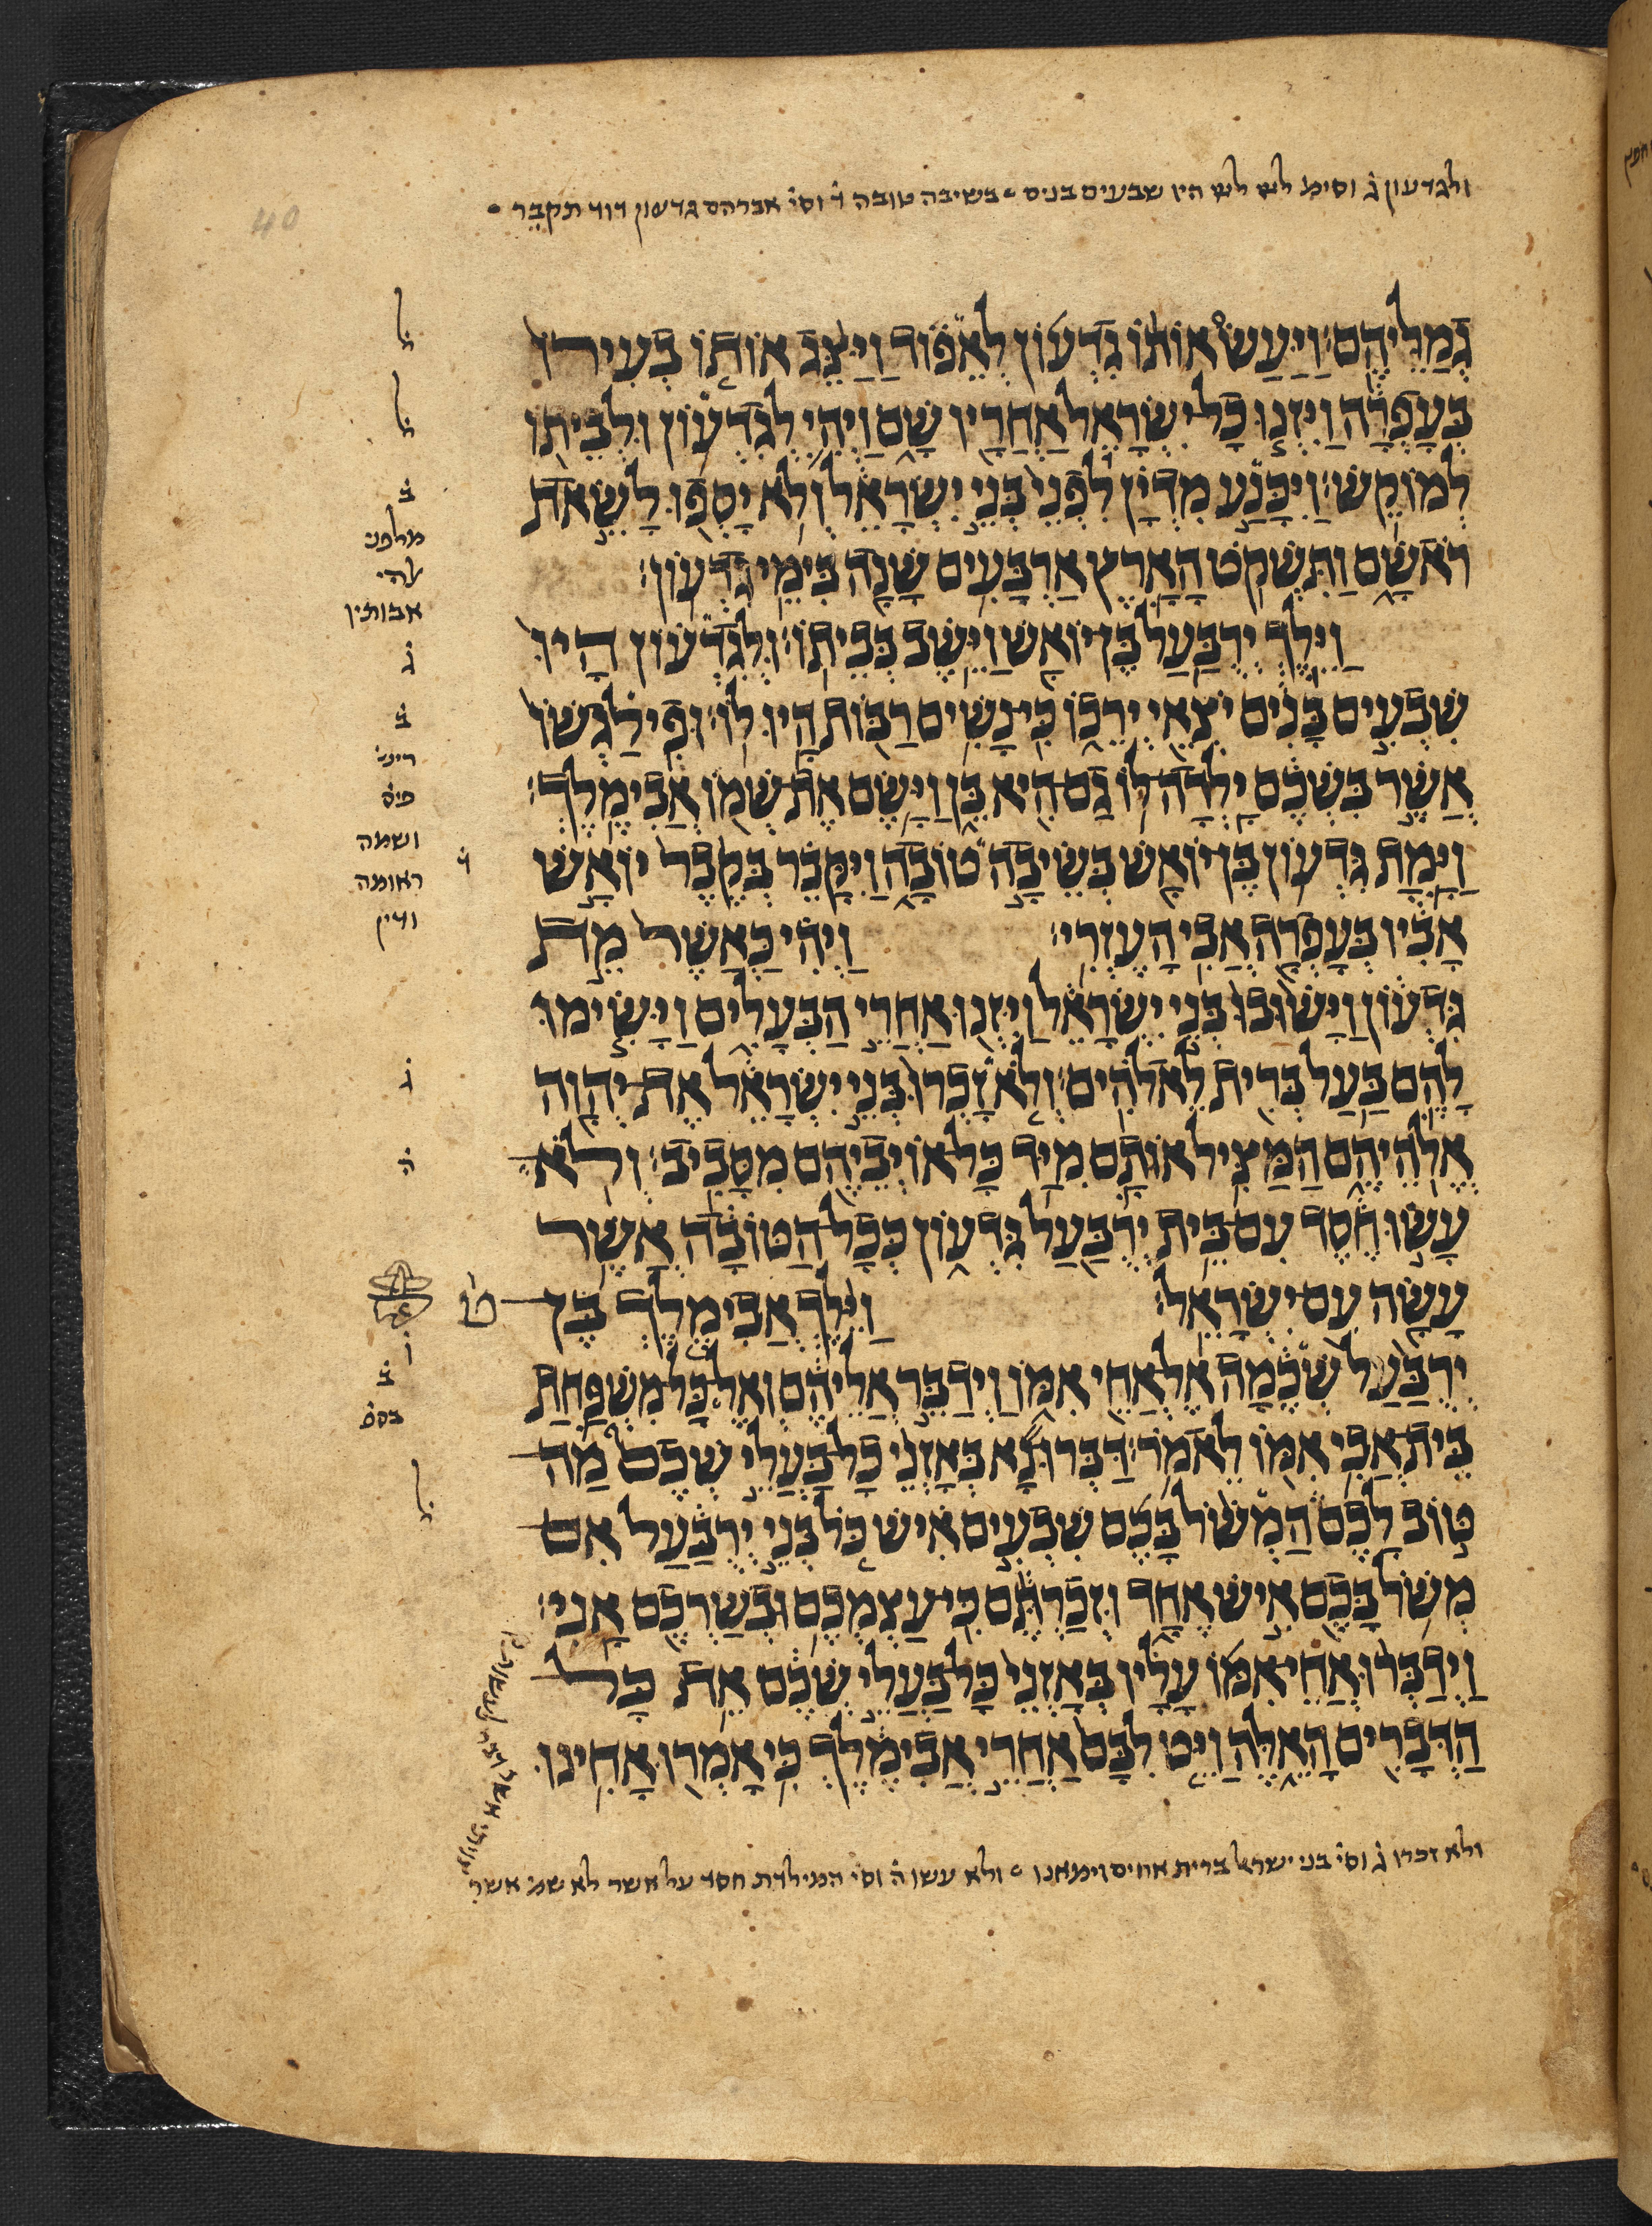 ולגדעון ג̇ וסימ היו שבעים בנים בשיבה טובה ד̇ וסי̇ אברהם גדעון דוד תקבר
40
גְּמַלֵּיהֶם׃ וַיַּעַשׂ אוֹתוֹ גִדְעוֹן לְאֵפוֹד וַיַּצֵּג אוֹתוֹ בְעִירוֹ
ל̇
בְּעָפְרָה וַיִּזְנוּ כָל יִשְׂרָאֵל אַחֲרָיו שָׁם וַיְהִי לְגִדְעוֹן וּלְבֵיתוֹ
ל̇
לְמוֹקֵשׁ׃ וַיִּכָּנַע מִדְיָן לִפְנֵי בְּנֵי יִשְׂרָאֵל וְלֹא יָסְפוּ לָשֵׂאת
ב̇
מלפני
רֹאשָׁם וַתִּשְׁקֹט הָאָרֶץ אַרְבָּעִים שָׁנָה בִּימֵי גִדְעוֹן׃
אבותין
וַיֵּלֶךְ יְרֻבַּעַל בֶּן יוֹאָשׁ וַיֵּשֶׁב בְּבֵיתוֹ׃ וּלְגִדְעוֹן הָיוּ
ג̇
שִׁבְעִים בָּנִים יֹצְאֵי יְרֵכוֹ כִּי נָשִׁים רַבּוֹת הָיוּ לוֹ׃ וּפִילַגְשׁוֹ
ב̇
אֲשֶׁר בִּשְׁכֶם יָלְדָה לּוֹ גַם הִיא בֵּן וַיָּשֶׂם אֶת שְׁמוֹ אֲבִימֶלֶךְ׃
ושמה
וַיָּמָת גִּדְעוֹן בֶּן יוֹאָשׁ בְּשֵׂיבָה טוֹבָה וַיִּקָּבֵר בְּקֶבֶר יוֹאָשׁ
ד̇
ראומה
אָבִיו בְּעָפְרָה אֲבִי הָעֶזְרִי׃ וַיְהִי כַּאֲשֶׁר מֵת
גִּדְעוֹן וַיָּשׁוּבוּ בְּנֵי יִשְׂרָאֵל וַיִּזְנוּ אַחֲרֵי הַבְּעָלִים וַיָּשִׂימוּ
לָהֶם בַּעַל בְּרִית לֵאלֹהִים׃ וְלֹא זָכְרוּ בְּנֵי יִשְׂרָאֵל אֶת יְהוָה
ג̇
אֱלֹהֵיהֶם הַמַּצִּיל אוֹתָם מִיַּד כָּל אוֹיְבֵיהֶם מִסָּבִיב׃ וְלֹא
ה̇
עָשׂוּ חֶסֶד עִם בֵּית יְרֻבַּעַל גִּדְעוֹן כְּכָל הַטּוֹבָה אֲשֶׁר
עָשָׂה עִם יִשְׂרָאֵל׃ וַיֵּלֶךְ אֲבִימֶלֶךְ בֶּן
ט
יְרֻבַּעַל שְׁכֶמָה אֶל אֲחֵי אִמּוֹ וַיְדַבֵּר אֲלֵיהֶם וְאֶל כָּל מִשְׁפַּחַת
ב̇
בֵּית אֲבִי אִמּוֹ לֵאמֹר׃ דַּבְּרוּ נָא בְּאָזְנֵי כָל בַּעֲלֵי שְׁכֶם מַה
טּוֹב לָכֶם הַמְשֹׁל בָּכֶם שִׁבְעִים אִישׁ כֹּל בְּנֵי יְרֻבַּעַל אִם
ל̇
מְשֹׁל בָּכֶם אִישׁ אֶחָד וּזְכַרְתֶּם כִּי עַצְמְכֶם וּבְשַׂרְכֶם אָנִי׃
וַיְדַבְּרוּ אֲחֵי אִמּוֹ עָלָיו בְּאָזְנֵי כָּל בַּעֲלֵי שְׁכֶם אֵת כָּל
הַדְּבָרִים הָאֵלֶּה וַיֵּט לִבָּם אַחֲרֵי אֲבִימֶלֶךְ כִּי אָמְרוּ אָחִינוּ
ולא זכרו ג̇ וסי̇ בני ישרא ברית אחים וימאנו ולא עשו ה̇ וסי̇ המילדת חסד על אשר לא שמ אשר